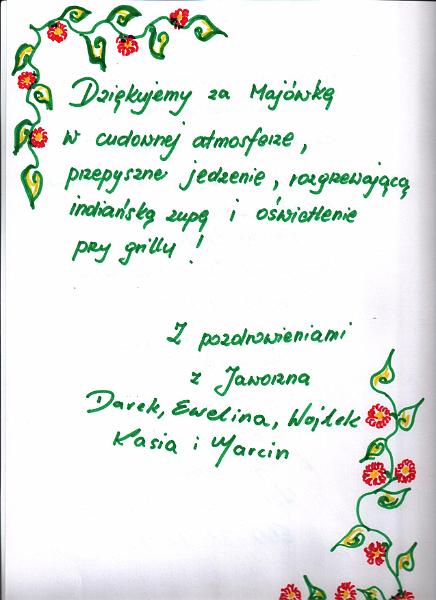 Dziękujemy za Majówkę
w cudownej atmosferze,
przepyszne jedzenie, rozgrzewającą
indiańską zupę i oświetlenie
przy grillu!
Z pozdrowieniami
z Jaworzna
Darek, Ewelina, Wojtek
Kasia i Marcin